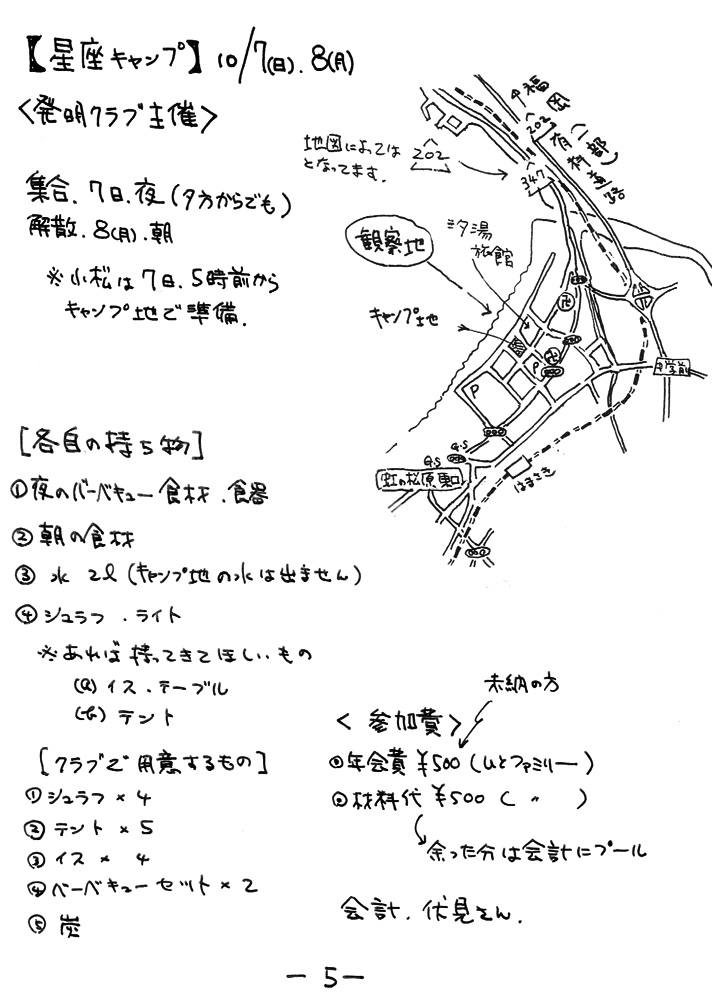 【星座キャンプ】10/7(日).8(月)
<発明クラブ主催>
集合.7日.夜(夕方からでも)
解散.8(月).朝
※小松は7日.5時前から
キャンプ地で準備.
↑福岡
202
有料道路
(一部)
地図によっては 202
となってます.
347
観察地
汐湯
旅館
キャンプ地
卍
卍
P
P
中学前
G.S
G.S
虹の松原東口
はまさき
[各自の持ち物]
①夜のバーベキュー食材.食器
②朝の食材
③水 2ℓ(キャンプ地の水は出ません)
④シュラフ.ライト
※あれば持ってきてほしいもの
(a)イス.テーブル
(b)テント
[クラブで用意するもの]
①シュラフ×4
②テント×5
③イス×4
④ベーベキューセット×2
⑤炭
未納の方
<参加費>
◎年会費¥500(ひとファミリー)
◎材料代¥500(〃)
余った分は会計にプール
会計.伏見さん.
-5-